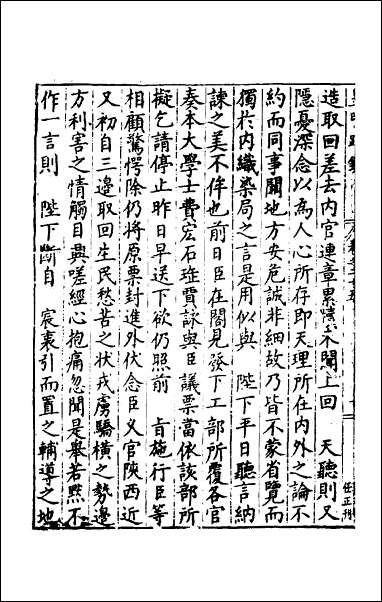 造取回差去内官連章累牘不聞上回　天聽則又
隱憂深念以為人心所存即天理所在内外之論不
約而同事關地方安危誠非細故乃皆不蒙省覽而
獨於内織染局之言是用似與　陛下平日聽言納
諫之美不侔也前日臣在閣見發下工部所覆各官
奏本大學士費宏石珤賈詠與臣議票當依該部所
擬乞請停止昨日早送下欲仍照前　旨施行臣等
相顧驚愕除仍將原票封進外伏念臣乂官陝西近
又初自三邊取回生民愁苦之狀戎虜驕橫之勢邊
方利害之情觸目興嗟經心抱痛忽聞是舉若黙不
作一言則　陛下斷自　宸衷引而置之輔導之地
任正刊